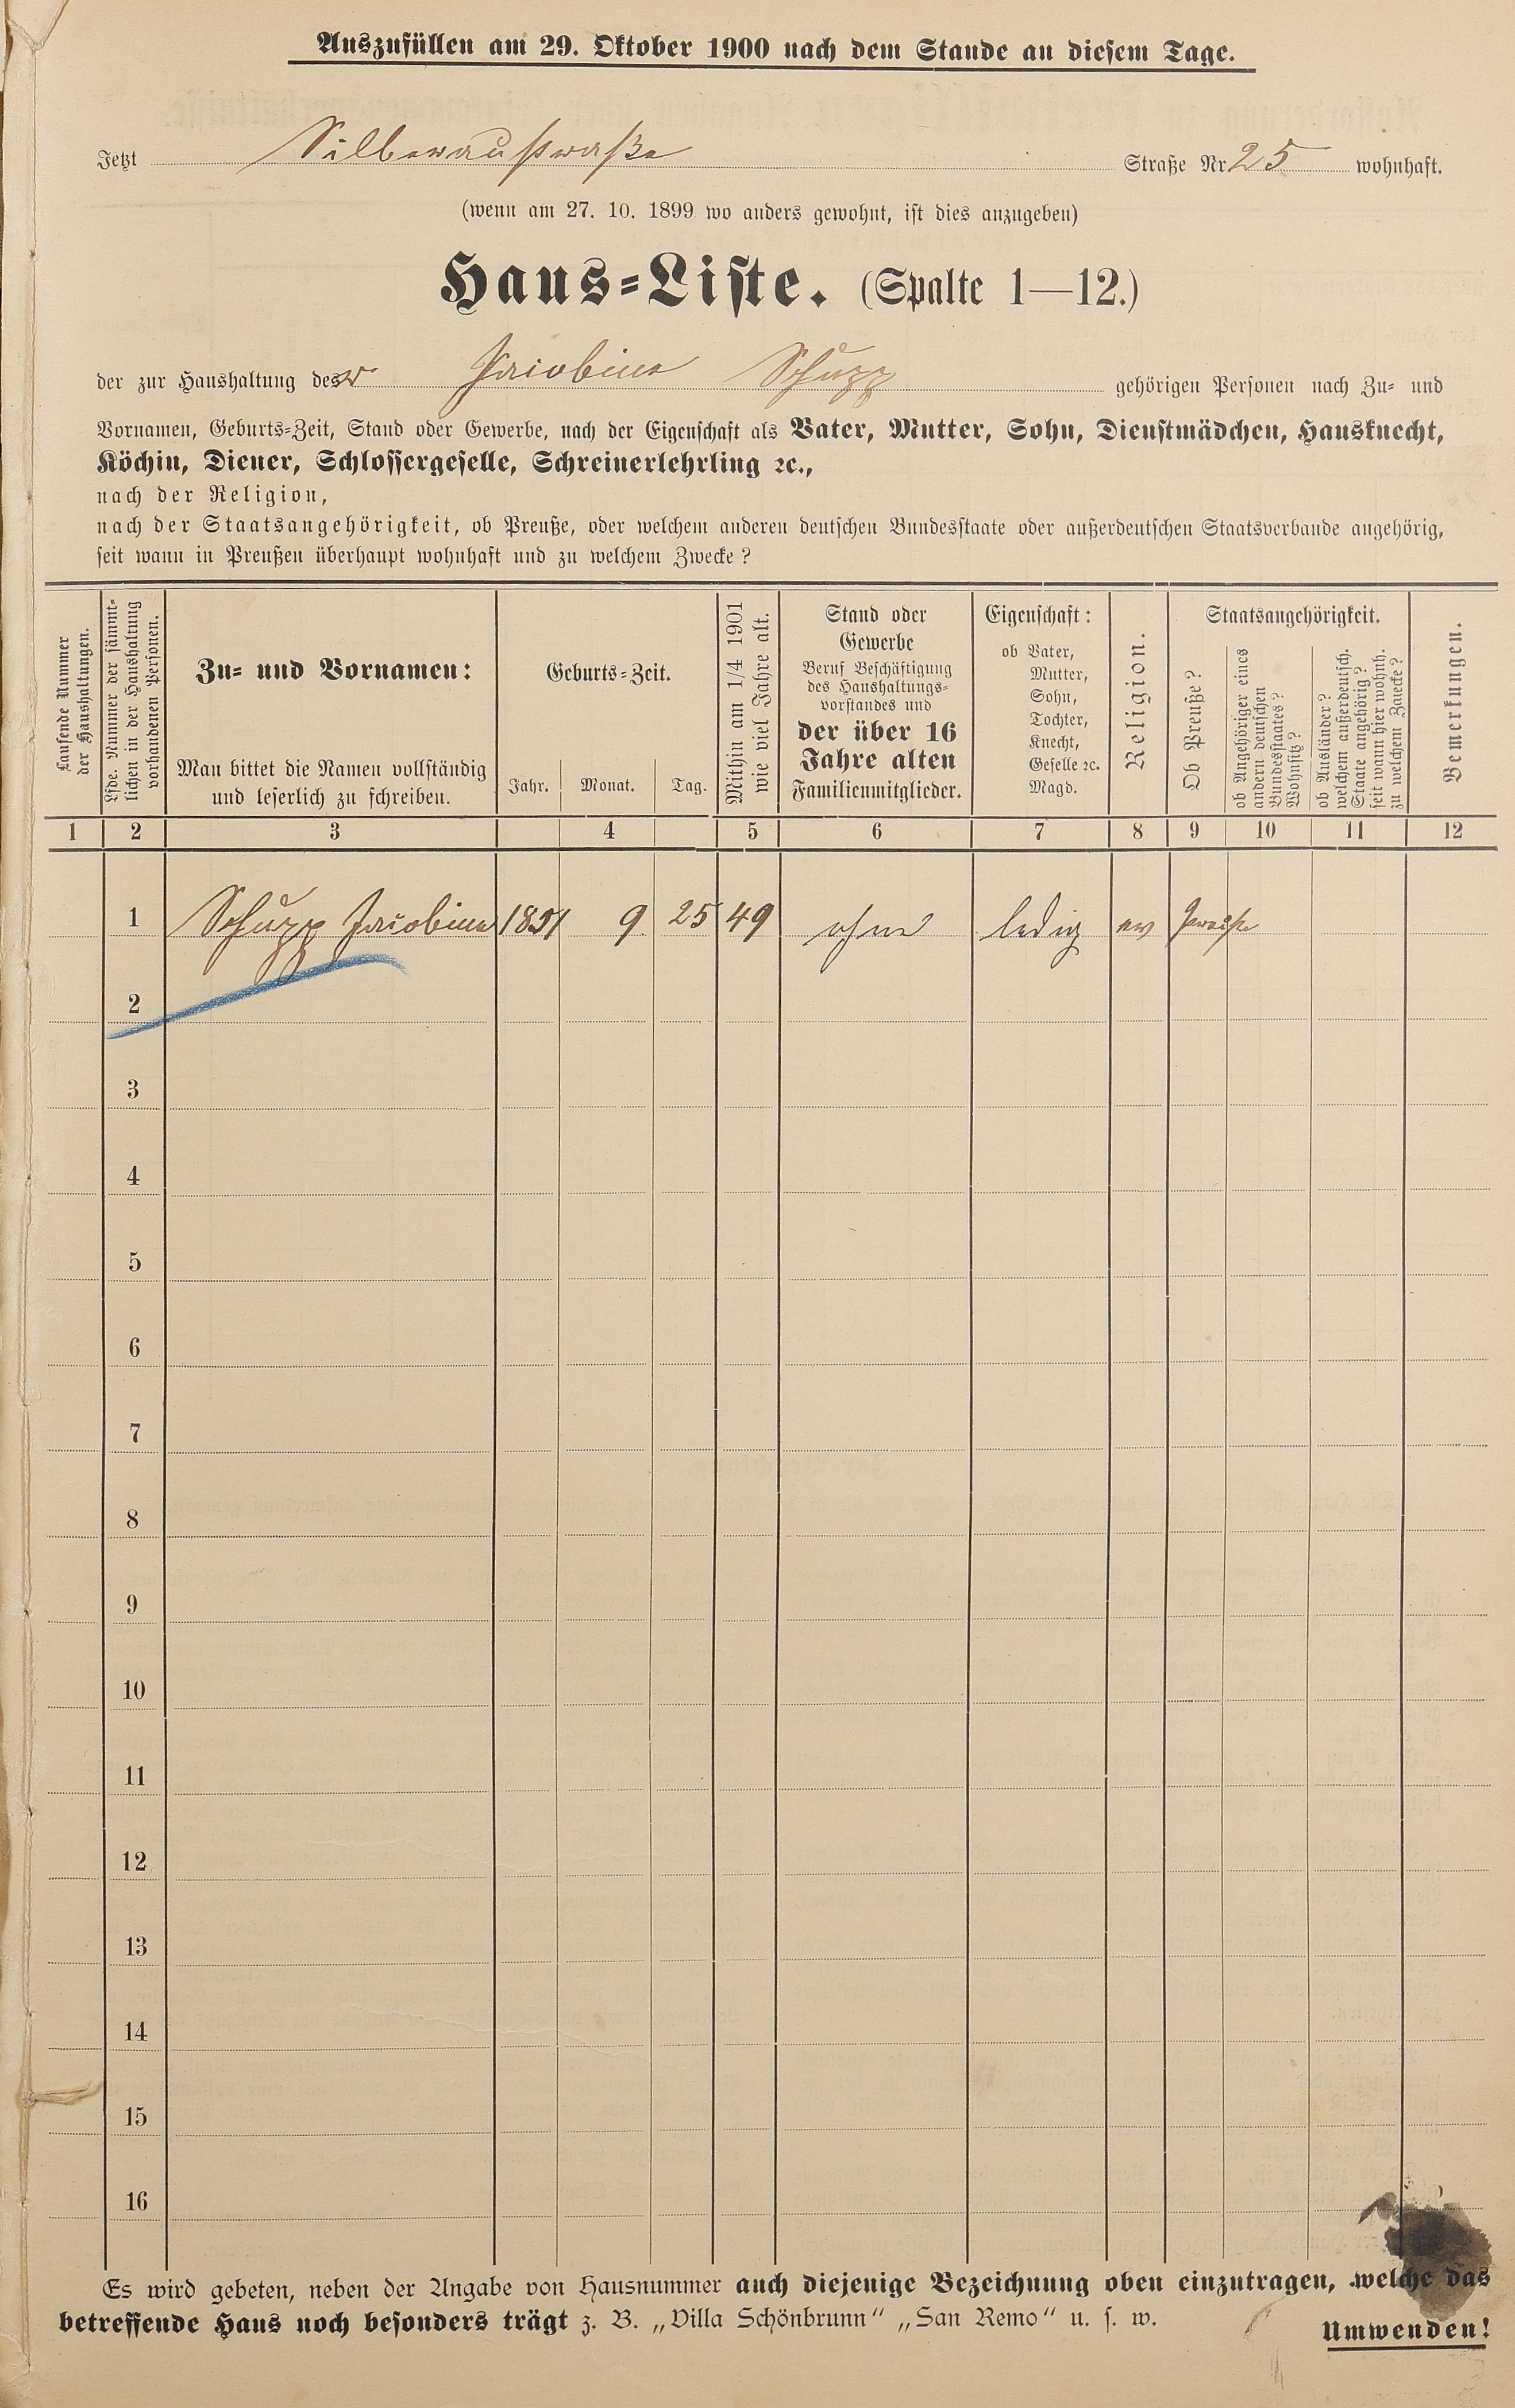 Auszufüllen am 29. Oktober 1900 nach dem Stande an diesem Tage.
Jetzt Silberaustraße Straße Nr 25 wohnhaft.
(wenn am 27. 10. 1899 wo anders gewohnt, ist dies anzugeben)
Haus-Liste. (Spalte 1—12.)
der zur Haushaltung des r Jacobine Schupp gehörigen Personen nach Zu- und
Vornamen, Geburts-Zeit, Stand oder Gewerbe, nach der Eigenschaft als Vater, Mutter, Sohn, Dienstmädchen, Hausknecht,
Köchin, Diener, Schlossergeselle, Schreinerlehrling ꝛc.,
nach der Religion,
nach der Staatsangehörigkeit, ob Preuße, oder welchem anderen deutschen Bundesstaate oder außerdeutschen Staatsverbande angehörig,
seit wann in Preußen überhaupt wohnhaft und zu welchem Zwecke?
Laufende Nummer
der Haushaltungen.
Lfde. Nummer der sämmt-
lichen in der Haushaltung
vorhandenen Personen.
Zu- und Vornamen:
Man bittet die Namen vollständig
und leserlich zu schreiben.
Geburts-Zeit.
Jahr. Monat. Tag.
Mithin am 1/4 1901
wie viel Jahre alt.
Stand oder
Gewerbe
Beruf Beschäftigung
des Haushaltungs-
vorstandes und
der über 16
Jahre alten
Familienmitglieder.
Eigenschaft:
ob Vater,
Mutter,
Sohn,
Tochter,
Knecht,
Geselle ꝛc.
Magd.
Religion.
Staatsangehörigkeit.
Ob Preuße?
ob Angehöriger eines
andern deutschen
Bundesstaates?
Wohnsitz?
ob Ausländer?
welchem außerdeutsch.
Staate angehörig?
seit wann hier wohnh.
zu welchem Zwecke?
Bemerkungen.
1 2 3 4 5 6 7 8 9 10 11 12
1 Schupp Jacobine 1851 9 25 49 ohne ledig ev Preuße
2
3
4
5
6
7
8
9
10
11
12
13
14
15
16
Es wird gebeten, neben der Angabe von Hausnummer auch diejenige Bezeichnung oben einzutragen, welche das
betreffende Haus noch besonders trägt z. B. „Villa Schönbrunn“ „San Remo“ u. s. w.
Umwenden!